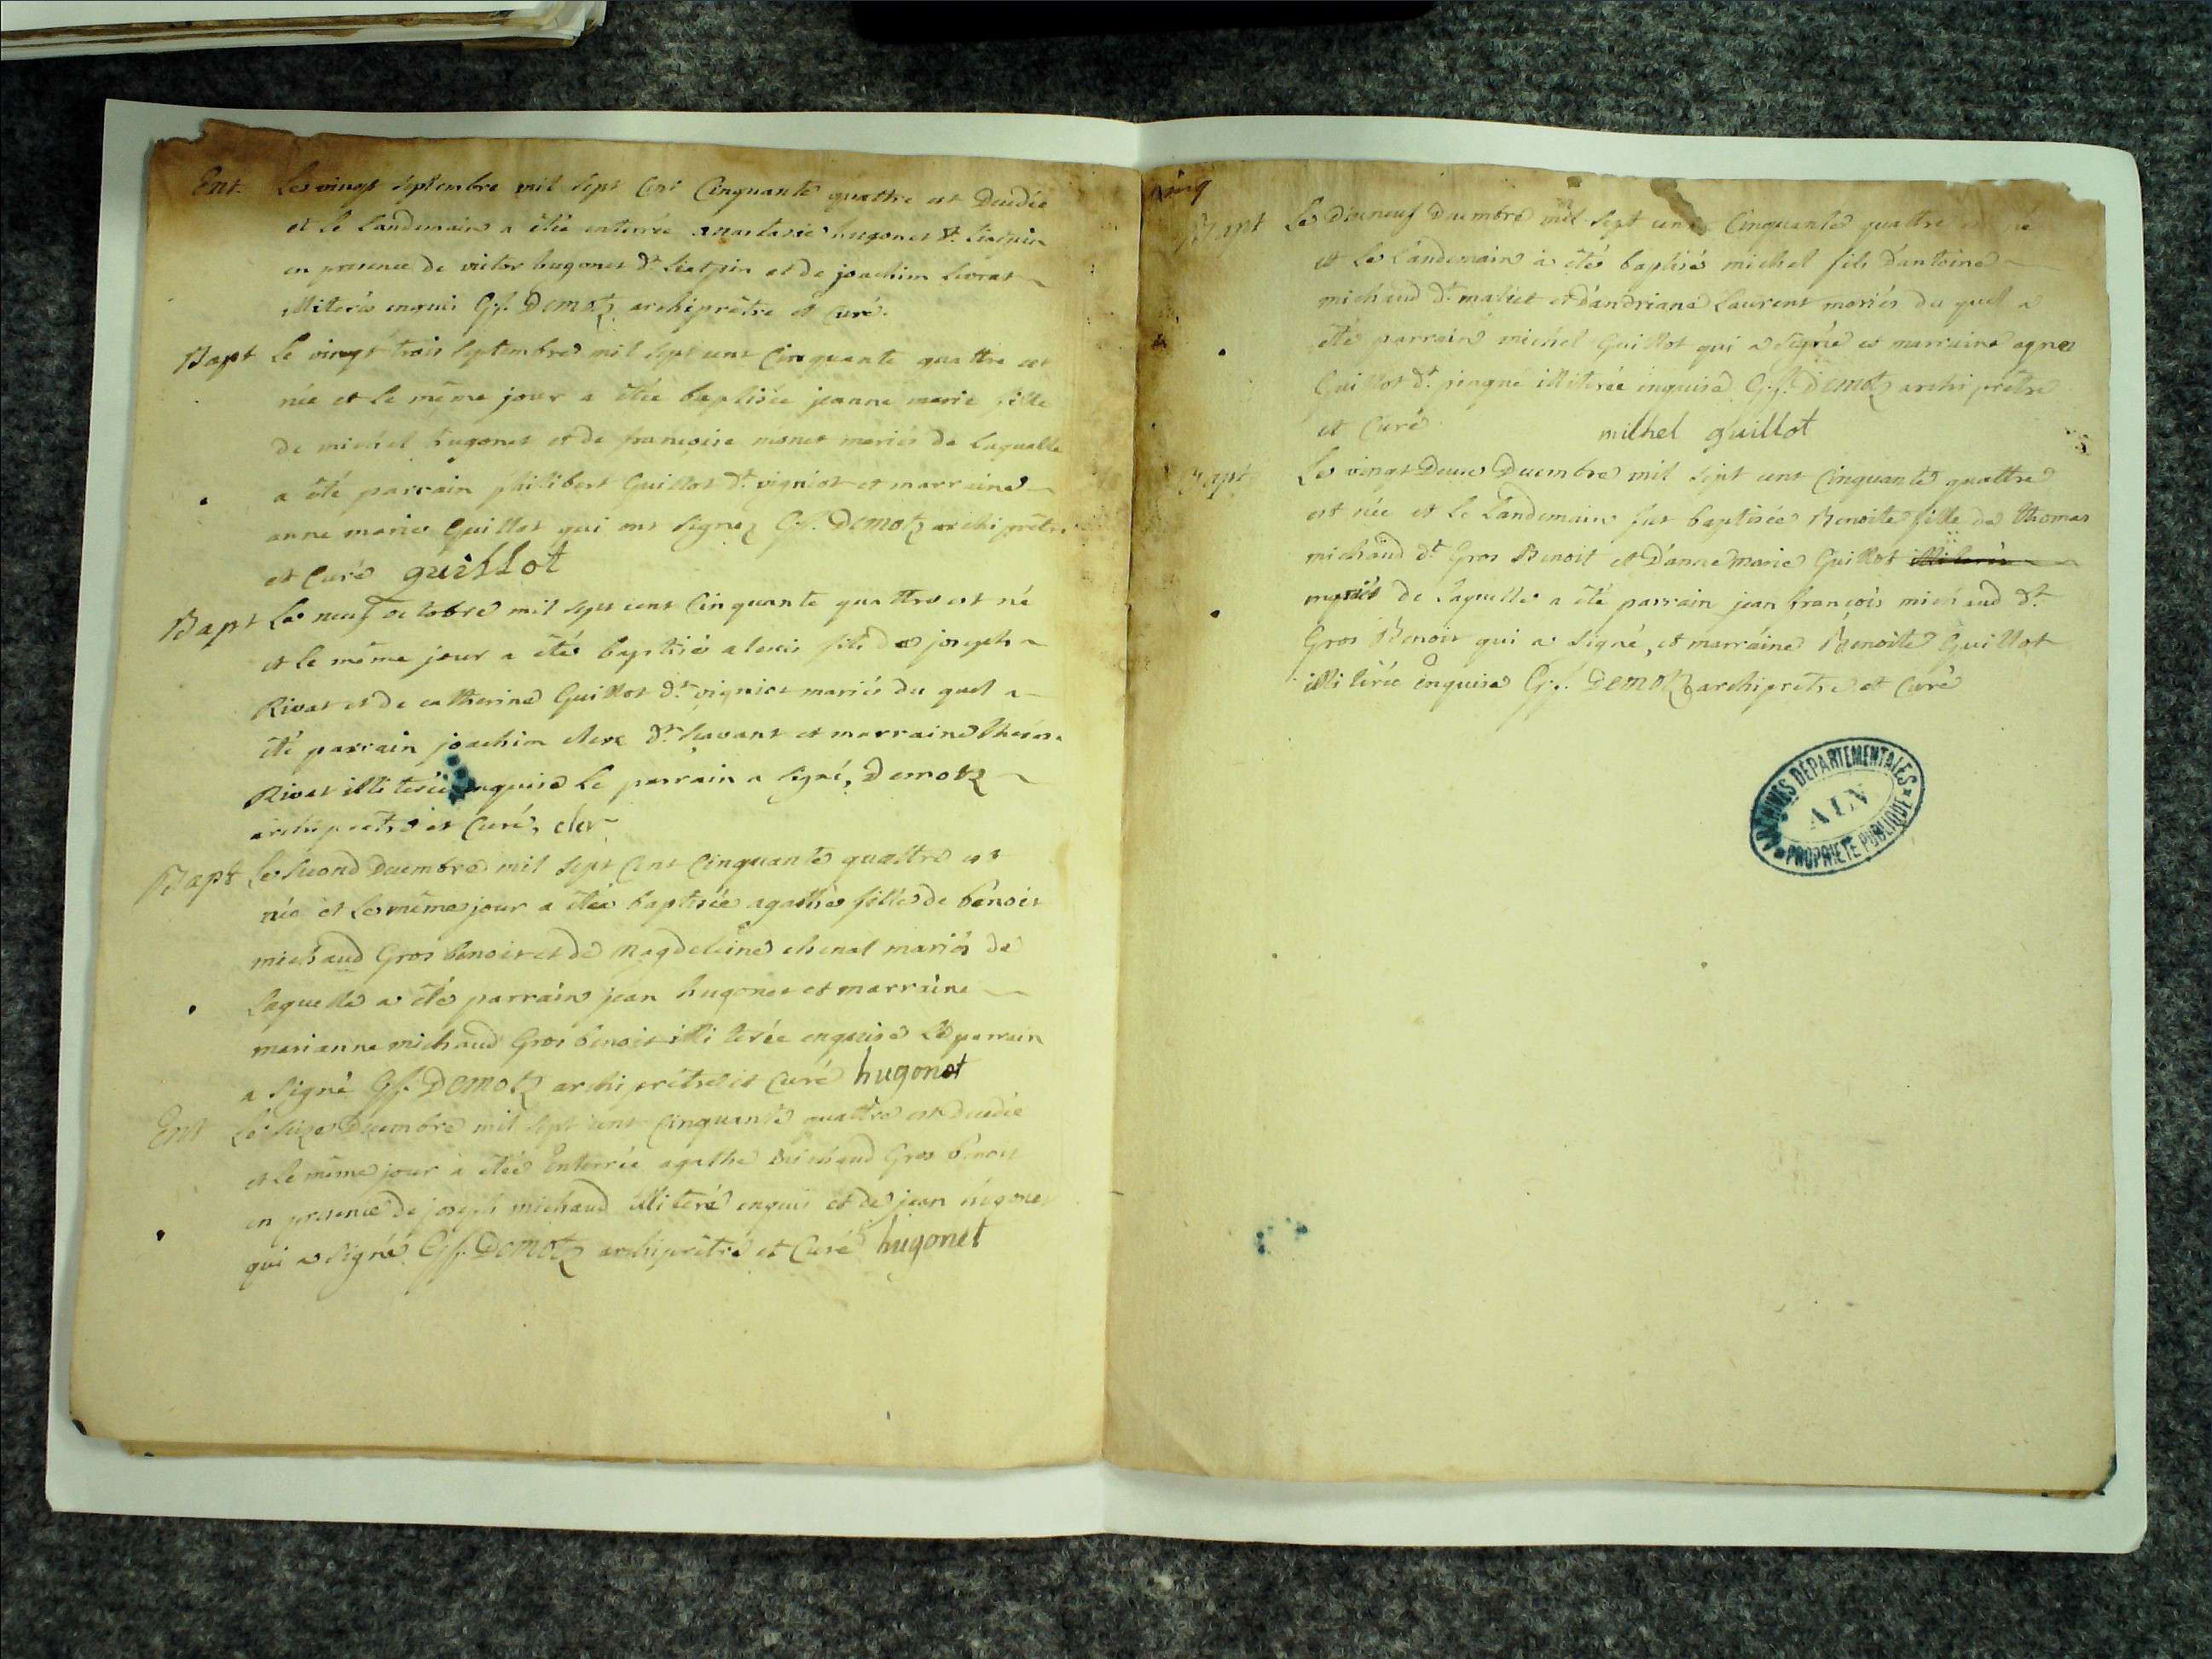 Ent. Le vingt septembre mil sept cent Cinquante quattre est Decedée
et le landemain a étée enterrée anastasie hugonet dt.
en presence de victor hugonet dt Lietpin et de joachim
illiterés enquis Gf. Demotz archiprêtre et Curé.
Bapt Le vingt trois septembre mil sept cent Cinquante quattre est
née et le même jour a étée baptisée jeanne marie fille
de michel hugonet et de françoise monet mariés de laquelle
a été parrain philibert Guillot dt. vigniot et marraine
anne marie Guillot qui ont signez Gf. Demotz archiprêtre
et Curé guillot
Bapt Le neuf octobre mil sept cent Cinquante quattre est né
et le même jour a étés baptisé alexis fils de joseph
Rivat et de catherine Guillot dt. vigniot mariés du quel a
été parrain joachim clerc dt. sçavant et marraine
Rivat illiterée enquise le parrain a signé, Demotz
archiprêtre et Curé, cler
Bapt Le second Decembre mil sept Cent Cinquante quattre est
née et le même jour a étée baptisée agathe fille de benoit
michaud Gros benoit et de Magdeleine chenal mariés de
laquelle a été parrain jean hugonet et marraine
marianne michaud Gros benoit illiterée enquise le parrain
a signé Gf. Demotz archiprêtre et Curé hugonet
Ent Le seize Decembre mil sept cent Cinquante quattre est decedée
et le même jour a étée Enterrée agathe michaud Gros benoit
en presence de joseph michaud illiteré enquis et de jean hugonet
qui a signé Gf. Demotz archiprêtre et Curé hugonet
cinq
Bapt Le Dixneuf Decembre mil sept cent Cinquante quattre est né
et le landemain a étés baptisé michel fils d'antoine
michaud dt. maliet et d'andriane Laurent mariés du quel a
été parrain michel Guillot qui a signé et marraine agnes
Guillot dt. pingné illiterée enquise Gf. Demotz archiprêtre
et Curé
milhel guillot
Bapt Le vingt Deux Decembre mil sept cent Cinquante quattre
est née et le landemain fut baptisée Benoite fille de thomas
michaud dt Gros Benoit et D'anne Marie Guillot illiterés
mariés de laquelle a été parrain jean françois michaud dt.
Gros Benoit qui a signé, et marraine Benoite Guillot
illiterée Enquise Gf. Demotz archiprêtre et Curé
ARCHIVES DÉPARTEMENTALES
AIN
PROPRIÉTÉ PUBLIQUE